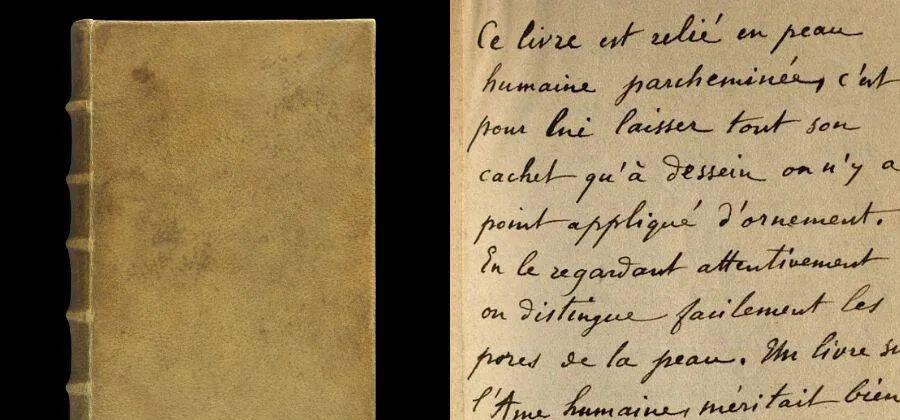 Ce livre est relié en peau
humaine parcheminée, c'est
pour lui laisser tout son
cachet qu'à dessein on n'y a
point appliqué d'ornement.
En le regardant attentivement
on distingue facilement les
pores de la peau. Un livre su
l'Ame humaine, méritait bien